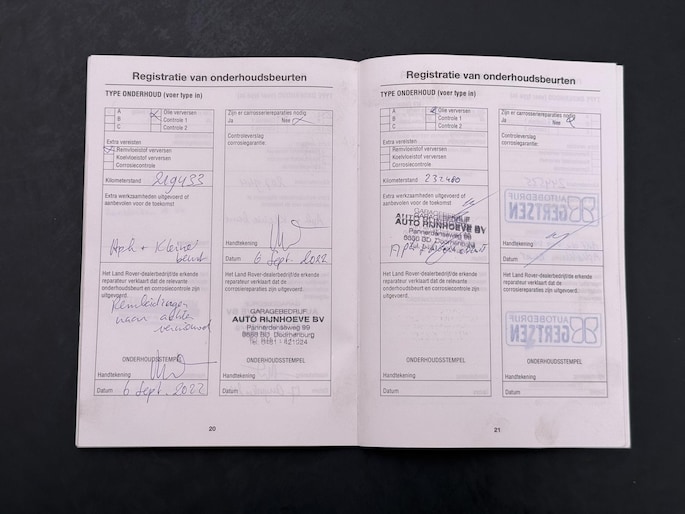 Registratie van onderhoudsbeurten
TYPE ONDERHOUD (voer type in)
A
B
C
Olie verversen
Controle 1
Controle 2
Extra vereisten
Remvloeistof verversen
Koelvloeistof verversen
Corrosiecontrole
Kilometerstand 219433
Extra werkzaamheden uitgevoerd of
aanbevolen voor de toekomst
Apk + Kleine
beurt
Het Land Rover-dealerbedrijf/de erkende
reparateur verklaart dat de relevante
onderhoudsbeurt en corrosiecontrole zijn
uitgevoerd.
Remleidingen
naar achter
vernieuwd
ONDERHOUDSSTEMPEL
Handtekening
Datum 6 Sept. 2022
Zijn er carrosseriereparaties nodig
Ja Nee
Controleverslag
corrosiegarantie:
Handtekening
Datum 6 Sept. 2022
Het Land Rover-dealerbedrijf/de erkende
reparateur verklaart dat de
carrosseriereparaties zijn uitgevoerd.
GARAGEBEDRIJF
AUTO RIJNHOEVE BV
Pannerdenseweg 99
Doornenburg
ONDERHOUDSSTEMPEL
Handtekening
Datum
20
Registratie van onderhoudsbeurten
TYPE ONDERHOUD (voer type in)
A
B
C
Olie verversen
Controle 1
Controle 2
Extra vereisten
Remvloeistof verversen
Koelvloeistof verversen
Corrosiecontrole
Kilometerstand 232480
Extra werkzaamheden uitgevoerd of
aanbevolen voor de toekomst
GARAGEBEDRIJF
AUTO RIJNHOEVE BV
Pannerdenseweg 99
Doornenburg
Het Land Rover-dealerbedrijf/de erkende
reparateur verklaart dat de relevante
onderhoudsbeurt en corrosiecontrole zijn
uitgevoerd.
ONDERHOUDSSTEMPEL
Handtekening
Datum
Zijn er carrosseriereparaties nodig
Ja Nee
Controleverslag
corrosiegarantie:
Handtekening
Datum
Het Land Rover-dealerbedrijf/de erkende
reparateur verklaart dat de
carrosseriereparaties zijn uitgevoerd.
ONDERHOUDSSTEMPEL
Handtekening
Datum
AUTOBEDRIJF
GERTSEN
AUTOBEDRIJF
GERTSEN
21